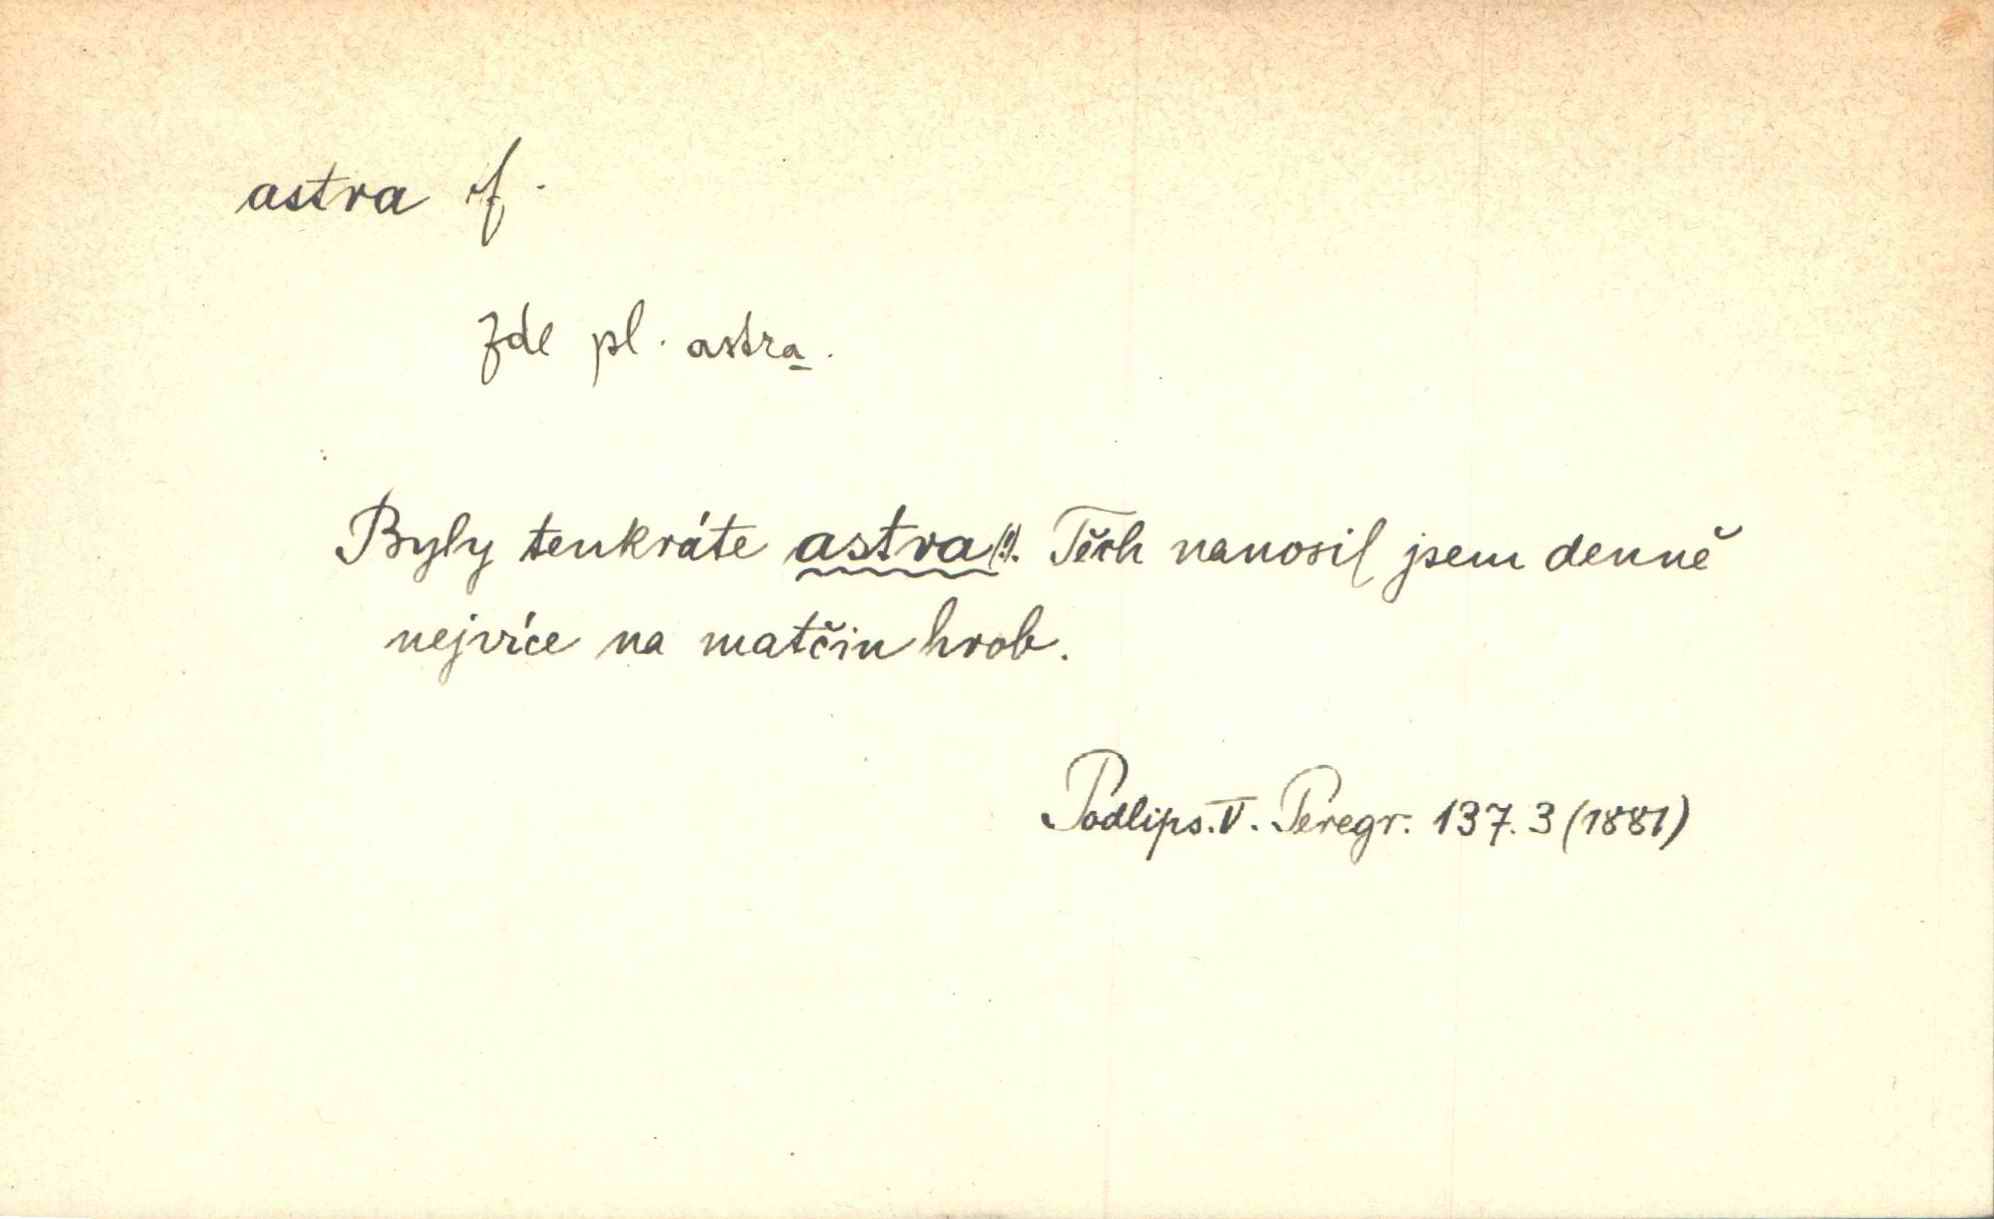 astra f.
Zde pl. astra.
Byly tenkráte astra(!). Těch nanosil jsem denně
nejvíce na matčin hrob.
Podlips. V. Peregr. 137.3 (1881)